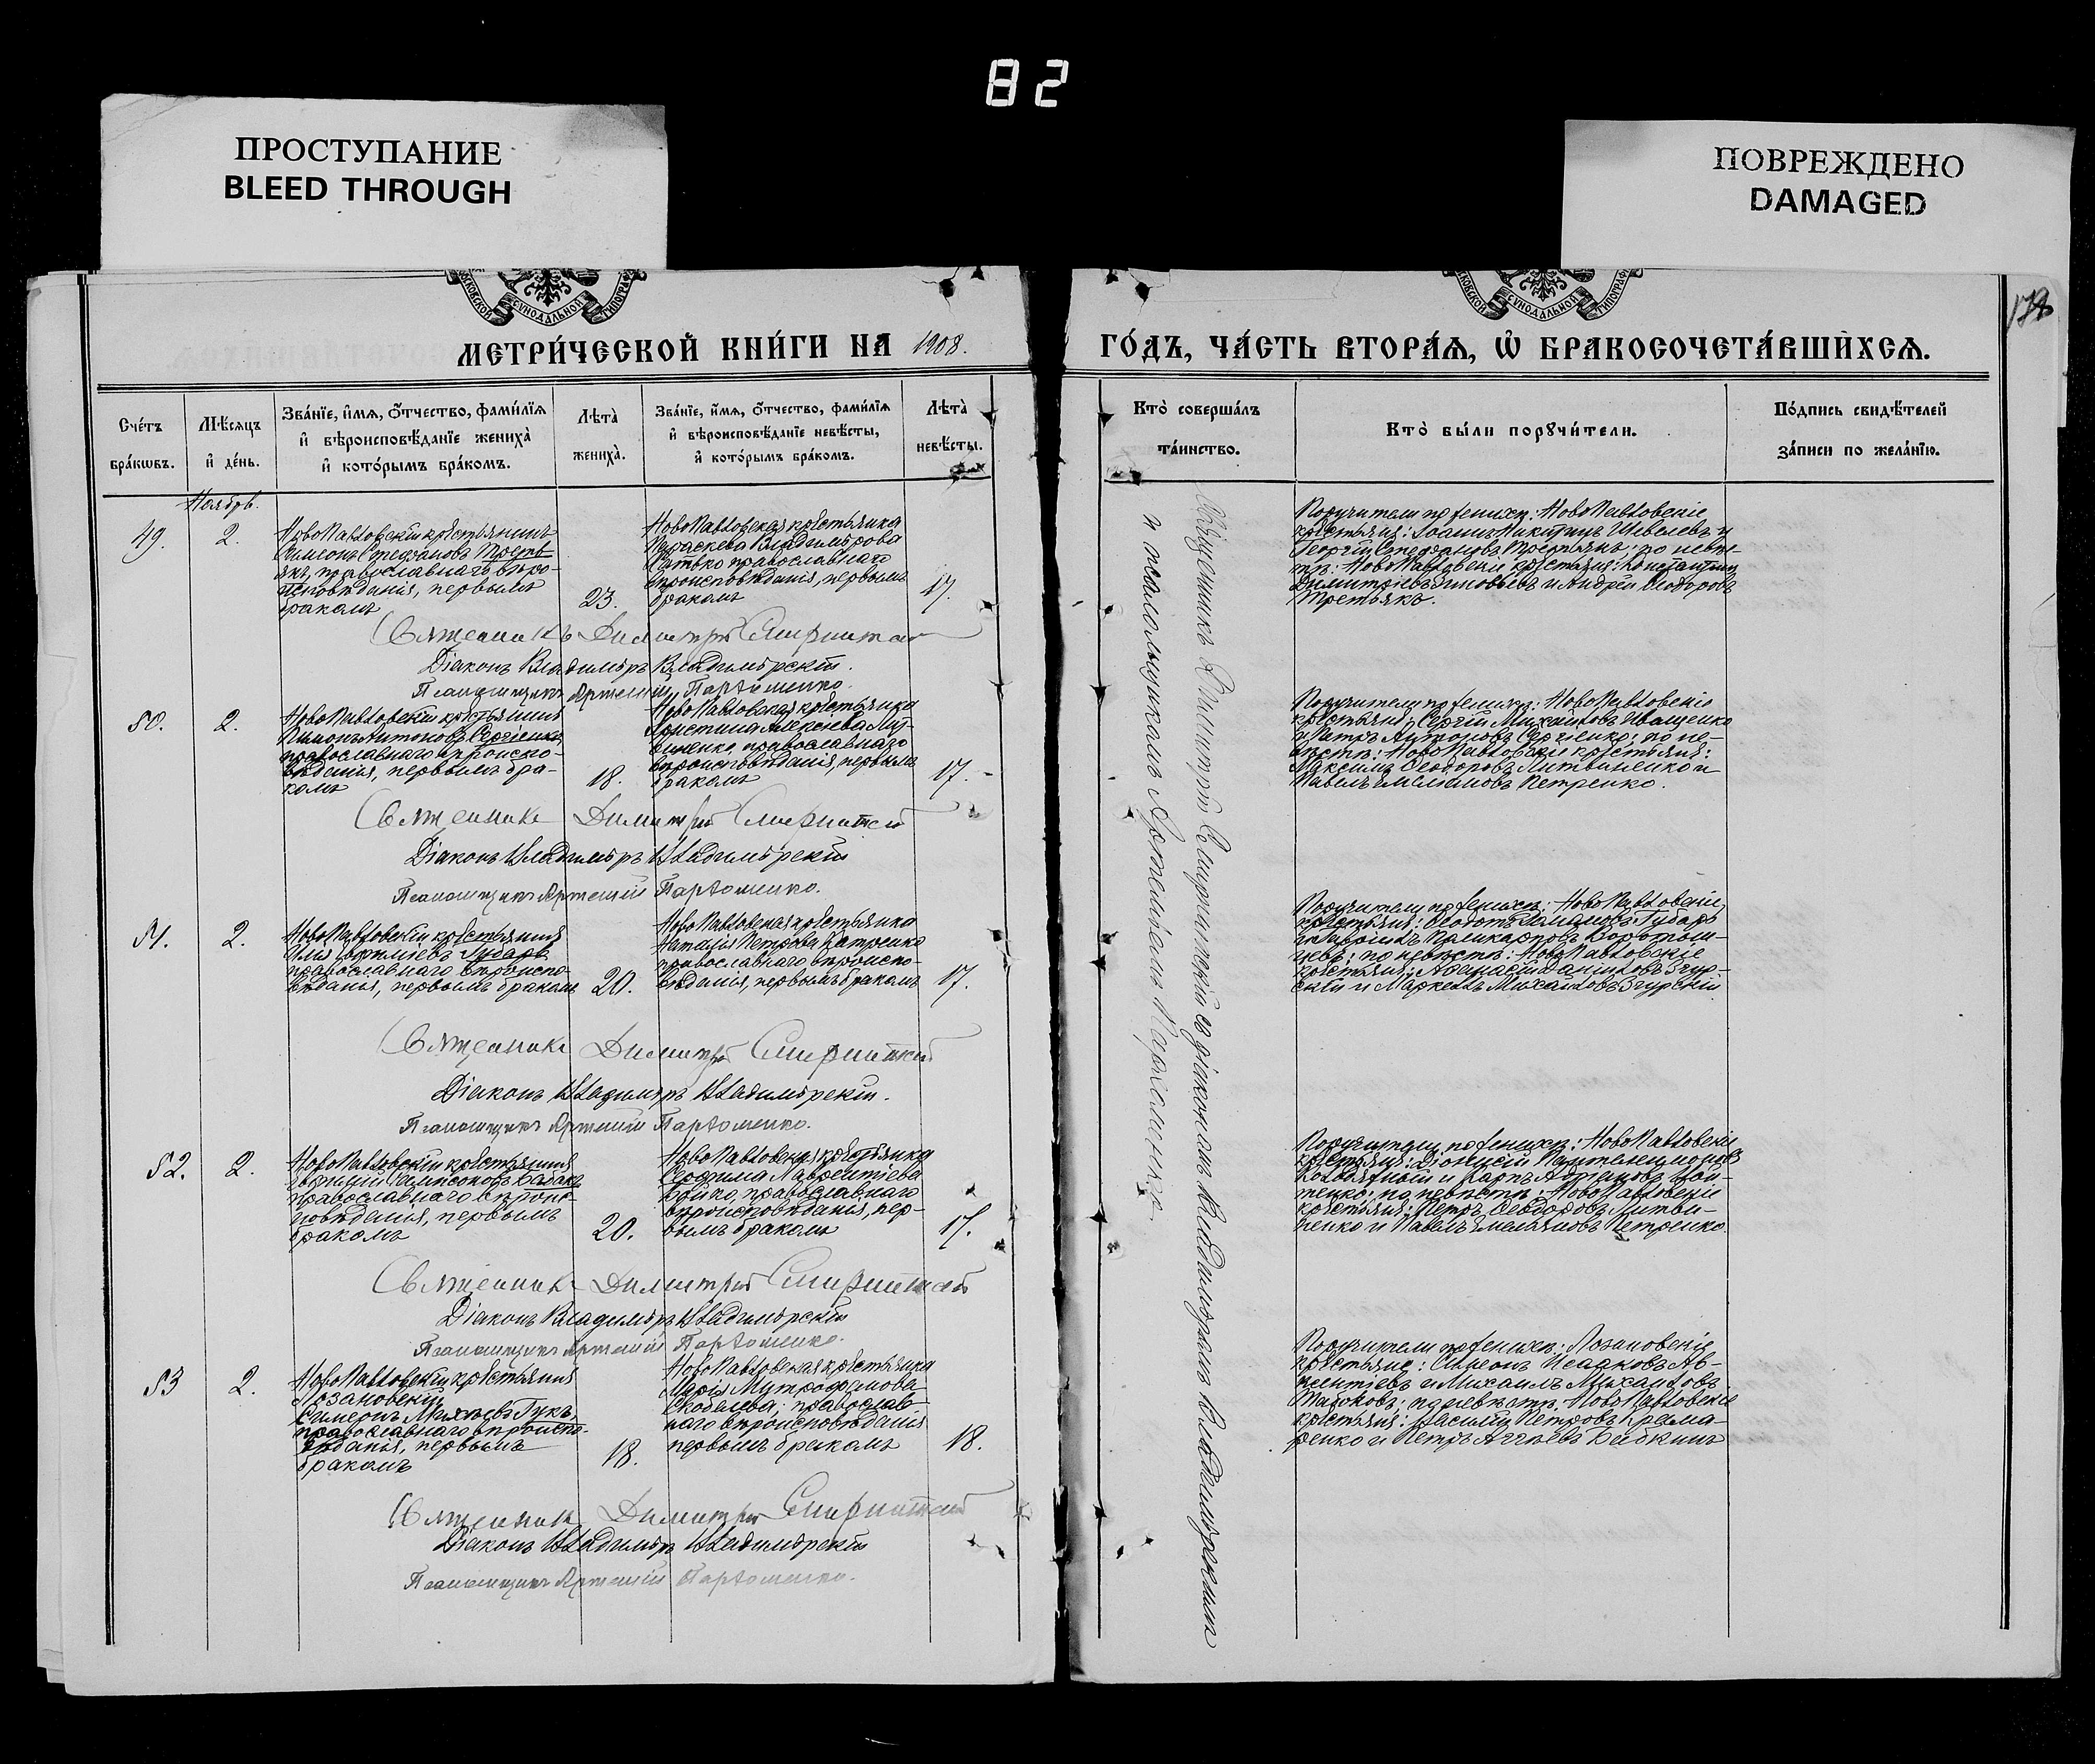 82
ПРОСТУПАНИЕ
BLEED THROUGH
ПОВРЕЖДЕНО
DAMAGED
МЕТРИ́ЧЕСКОЙ КНИ́ГИ НА 1908.
ГО́ДЪ, ЧА́СТЬ ВТОРА́Я, Ѡ БРАКОСОЧЕТА́ВШИХСЯ.
Сче́тъ бра́кѡвъ.
Мѣ́сяцъ и де́нь.
Зва́нїе, и́мя, ѻ́тчество, фами́лїя
и҆ вѣроисповѣ́данїе жениха̀
и҆ кото́рымъ бра́комъ.
Лѣта̀
жениха̀.
Зва́нїе, и́мя, ѻ́тчество, фами́лїя
и҆ вѣроисповѣ́данїе невѣ́сты,
и҆ кото́рымъ бра́комъ.
Лѣта̀
невѣ́сты.
Кто̀ соверша́лъ
та́инство.
Кто̀ бы́ли порꙋчи́тели.
По́дпись свидѣ́телей
за́писи по жела́нїю.
Ноябрь.
49.
2.
НовоПавловскій крестьянинъ
Симеонъ Стефановъ Треть-
якъ, православнаго вѣро-
исповѣданія, первымъ
бракомъ
23.
НовоПавловская крестьянка
Параскева Владимірова
православнаго
вѣроисповѣданія, первымъ
бракомъ
17.
Поручители по женихѣ: НовоПавловскіе
крестьяне: Іоаннъ Никитинъ и
Георгій Стефановъ Третьякъ; по невѣс-
тѣ: НовоПавловскіе крестьяне: Константинъ
Димитріевъ и Андрей Ѳеодоровъ
Третьякъ.
Священникъ Димитрій
Діаконъ Владиміръ Владимірскій.
Псаломщикъ Артемій Пархоменко.
50.
2.
НовоПавловскій крестьянинъ
Антоновъ Сергіенко
православнаго вѣроиспо-
вѣданія, первымъ бра-
комъ
18.
НовоПавловская крестьянка
Христина Алексіева Лит-
виненко, православнаго
вѣроисповѣданія, первымъ
бракомъ
17.
Поручители по женихѣ: НовоПавловскіе
крестьяне: Сергій Михайловъ Иващенко
и Петръ Антоновъ Сергіенко; по не-
вѣстѣ: НовоПавловскіе крестьяне:
Максимъ Ѳеодоровъ Литвиненко и
Павелъ Емеліановъ Петренко.
Священникъ Димитрій
Діаконъ Владиміръ Владимірскій
Псаломщикъ Артемій Пархоменко.
51.
2.
НовоПавловскій крестьянинъ
Илія Губарь
православнаго вѣроиспо-
вѣданія, первымъ бракомъ
20.
НовоПавловская крестьянка
Наталія Петрова
православнаго вѣроиспо-
вѣданія, первымъ бракомъ
17.
Поручители по женихѣ: НовоПавловскіе
крестьяне: Ѳеодотъ Губарь
и Гавріилъ Поликарповъ
по невѣстѣ: НовоПавловскіе
крестьяне: Аѳанасій Даниловъ Згур-
скій и Маркелъ Михайловъ Згурскій
Священникъ Димитрій
Діаконъ Владиміръ Владимірскій.
Псаломщикъ Артемій Пархоменко.
52.
2.
НовоПавловскій крестьянинъ
православнаго вѣроис-
повѣданія, первымъ
бракомъ
20.
НовоПавловская крестьянка
Лаврентіева
Бойко, православнаго
вѣроисповѣданія, пер-
вымъ бракомъ
17.
Поручители по женихѣ: НовоПавловскіе
крестьяне: Діонисій Пантелеимоновъ
и Карпъ
по невѣстѣ: НовоПавловскіе
крестьяне: Петръ Ѳеодоровъ Литви-
ненко и Павелъ Емельяновъ Петренко.
Священникъ Димитрій
Діаконъ Владиміръ Владимірскій
Псаломщикъ Артемій Пархоменко.
53
2.
НовоПавловскій крестьянинъ
Лозановскій
Симеонъ Гукъ,
православнаго вѣроиспо-
вѣданія, первымъ
бракомъ
18.
НовоПавловская крестьянка
Марія Митрофанова
Скобелева; православ-
наго вѣроисповѣданія
первымъ бракомъ
18.
Поручители по женихѣ: Лозановскіе
крестьяне: Симеонъ Исааковъ Ав-
рентіевъ и Михаилъ Михайловъ
по невѣстѣ: НовоПавловскіе
крестьяне: Василій Петровъ Крама-
ренко и Петръ Аггѣевъ Бабкинъ
Священникъ Димитрій
Діаконъ Владиміръ Владимірскій
Псаломщикъ Артемій Пархоменко.
Священникъ Димитрій съ діакономъ Владиміромъ Владимірскимъ
и псаломщикомъ Артеміемъ Пархоменко.